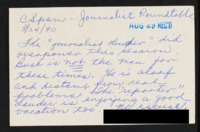 C Span - Journalist Roundtable
8/24/90 AUG 29 REC'D
The "journalist Hunter" did
overpower this discussion.
Bush is not the man for
these times. He is aloof
and distant from real
problems. The "reporter"
Hunter is enjoying a good
vacation too.